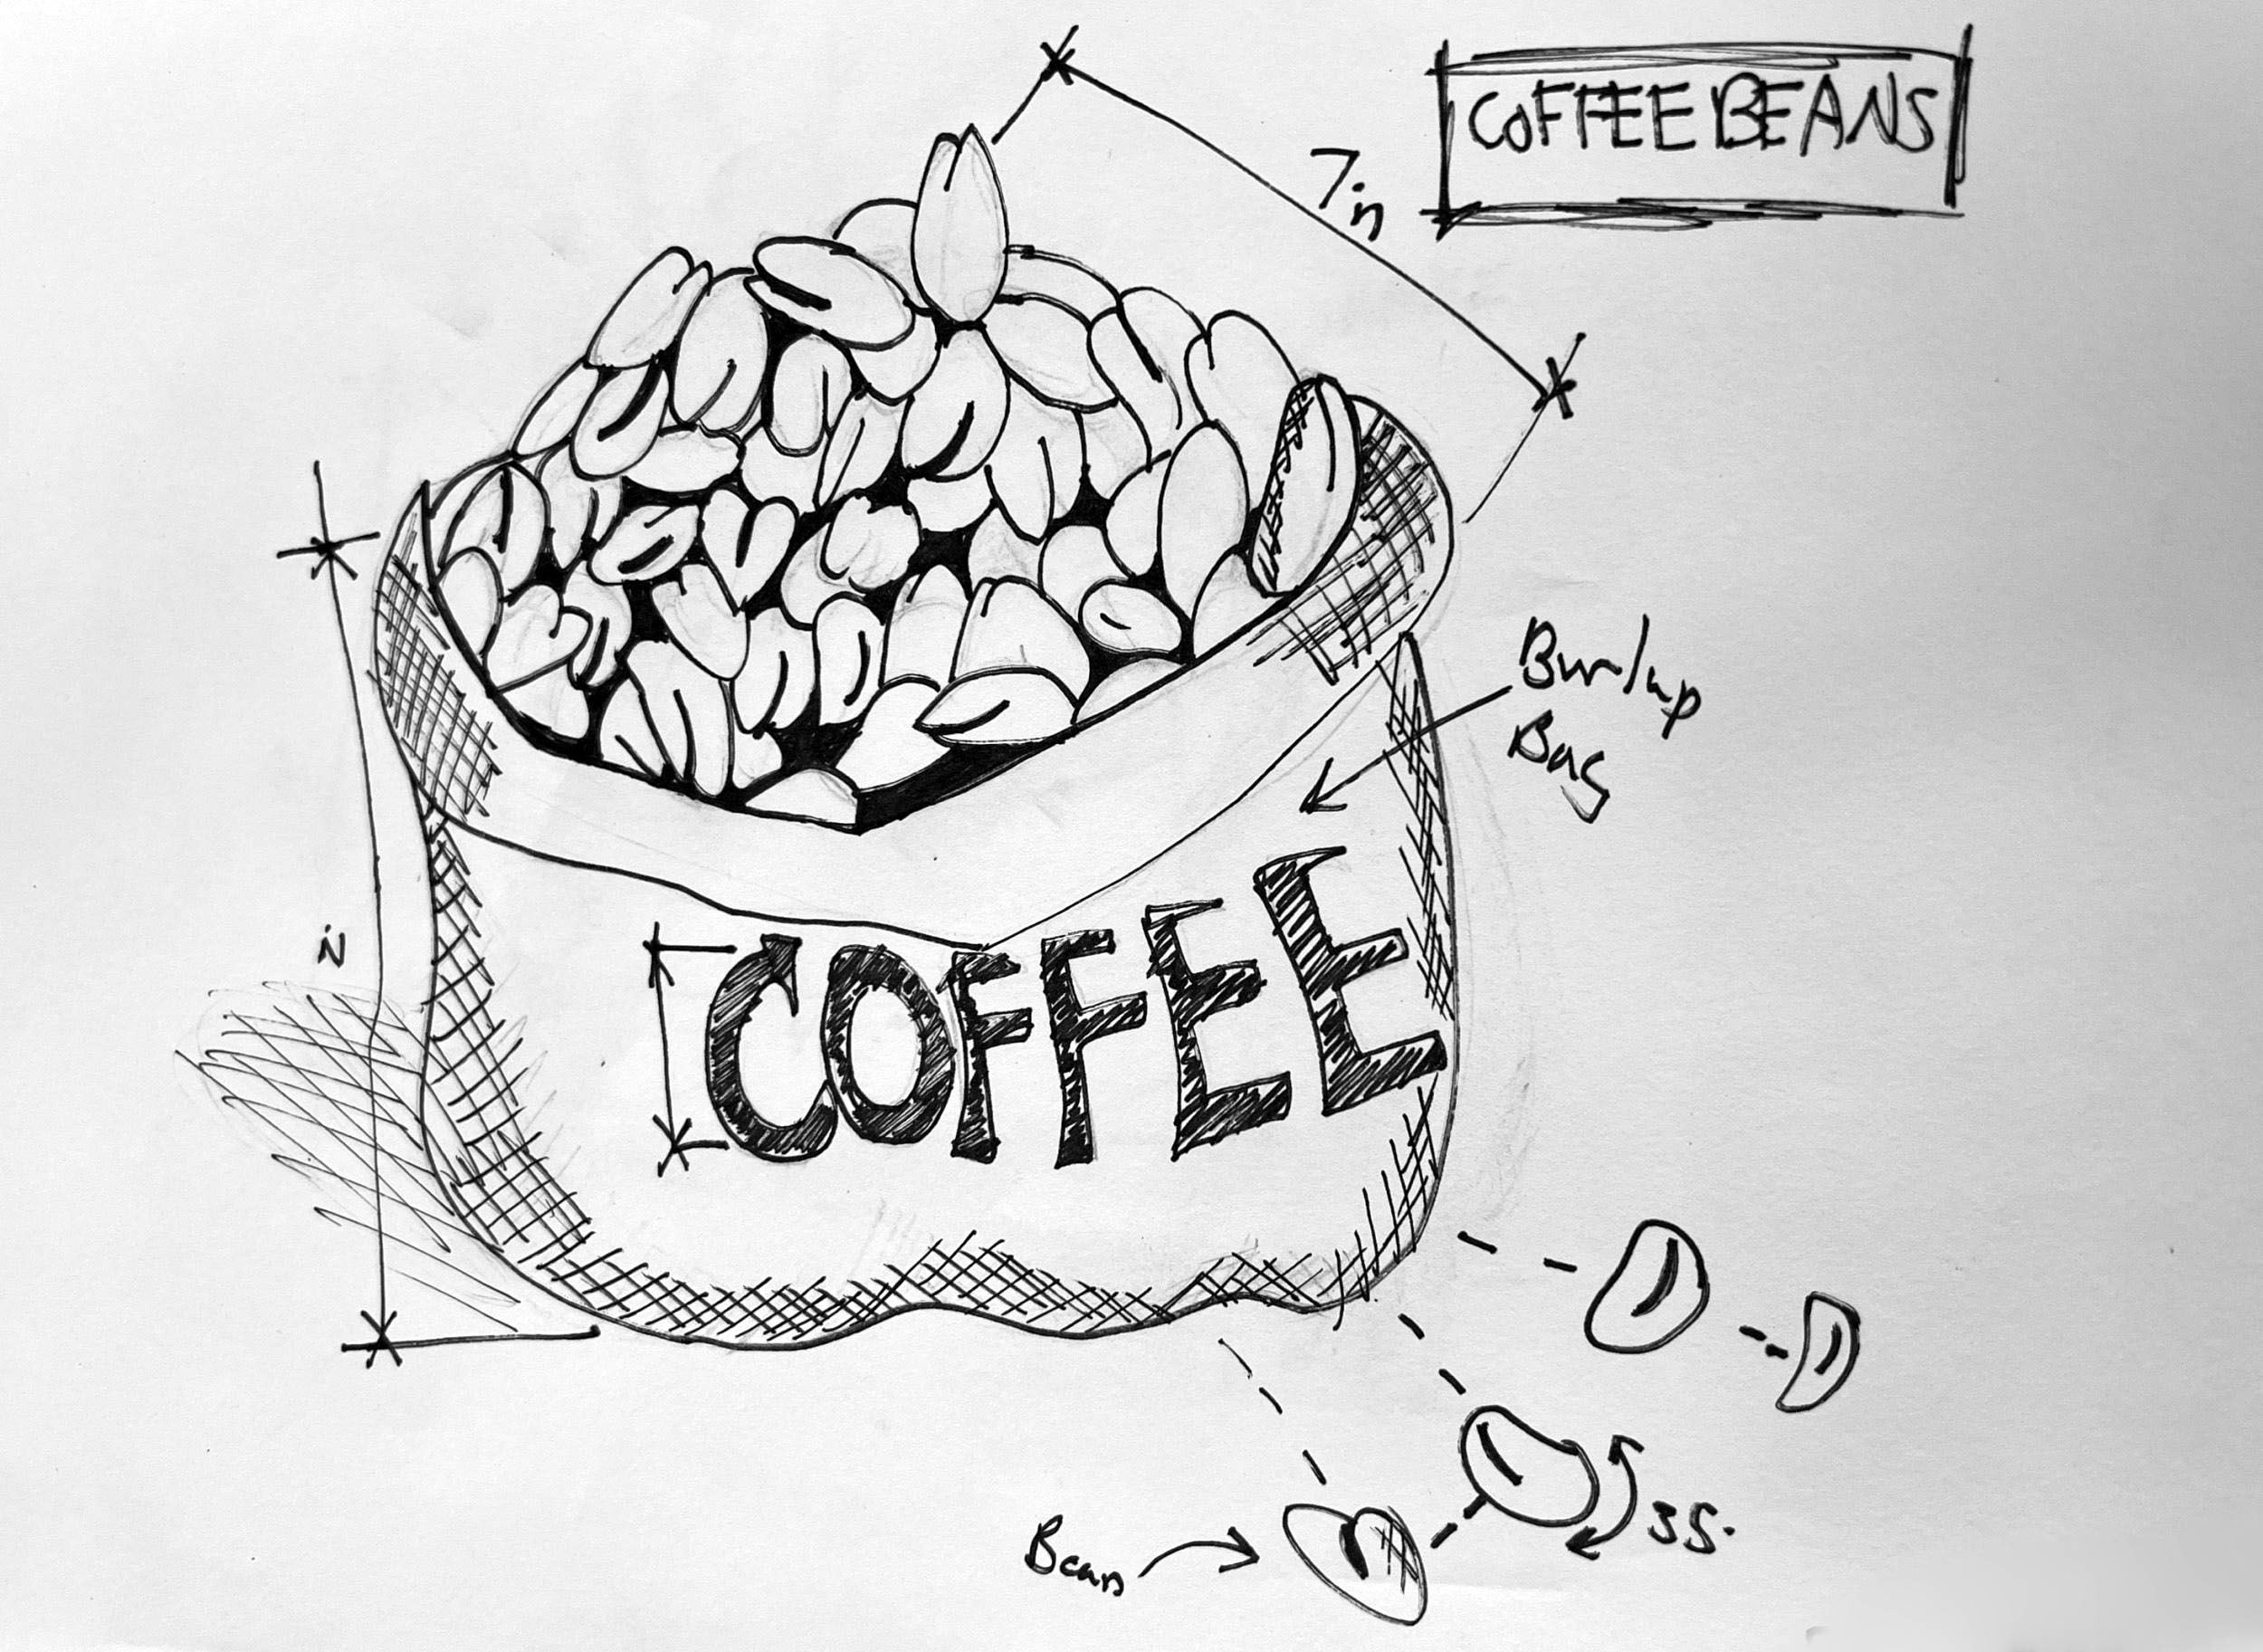 COFFEE BEANS
7in
Burlap
Bag
in
COFFEE
35.
Bean